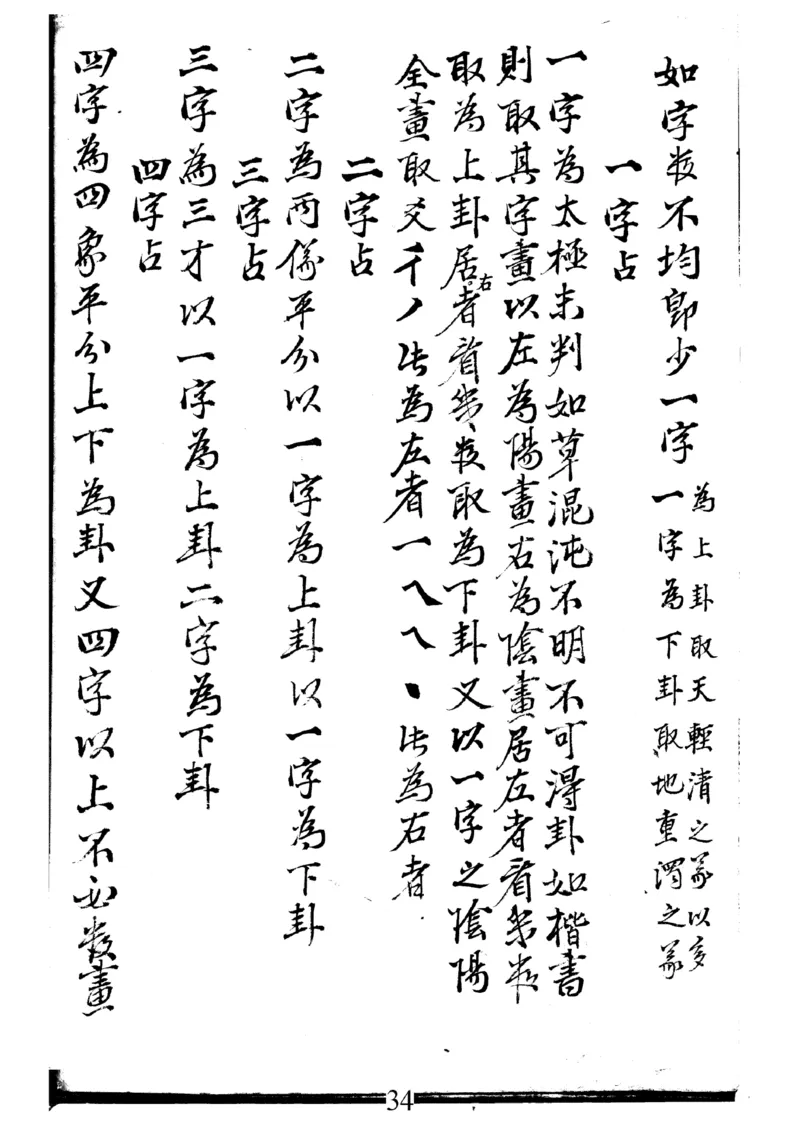 如字数不均即少一字
為上卦取天輕清之義以多
一字為下卦取地重濁之義
一字占
一字為太極未判如草混沌不明不可得卦如楷書
則取其字畫以左為陽畫右為陰畫居左者看幾数
取為上卦居右者看幾数取為下卦又以一字之陰陽
全畫取爻彳丿此為左者一乀乀丶此為右者
二字占
二字為两儀平分以一字為上卦以一字為下卦
三字占
三字為三才以一字為上卦二字為下卦
四字占
四字為四象平分上下為卦又四字以上不必数畫
34